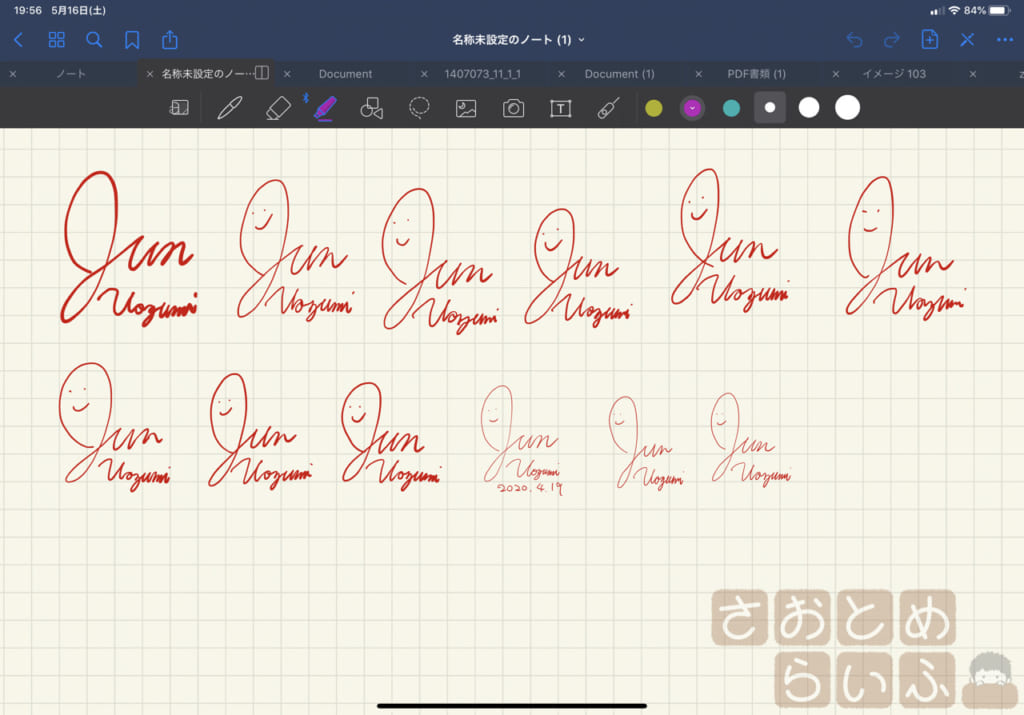 19:56 5月16日(土)
84%
名称未設定のノート (1)
ノート
名称未設定のノー…
Document
1407073_11_1_1
Document (1)
PDF書類 (1)
イメージ 103
z
T
Jun
Uozumi
Jun
Uozumi
Jun
Uozumi
Jun
Uozumi
Jun
Uozumi
Jun
Uozumi
Jun
Uozumi
Jun
Uozumi
Jun
Uozumi
Jun
Uozumi
2020.4.19
Jun
Uozumi
Jun
Uozumi
さおとめ
らいふ